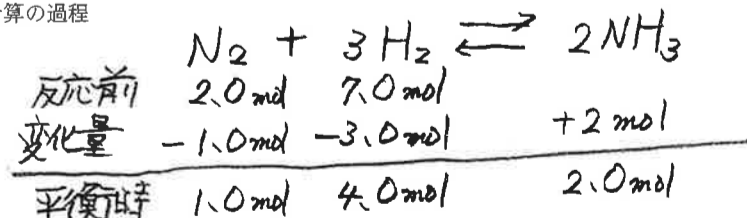 算の過程
N₂ + 3H₂ ⇄ 2NH₃
反応前 2.0mol 7.0mol
変化量 -1.0mol -3.0mol +2mol
平衡時 1.0mol 4.0mol 2.0mol